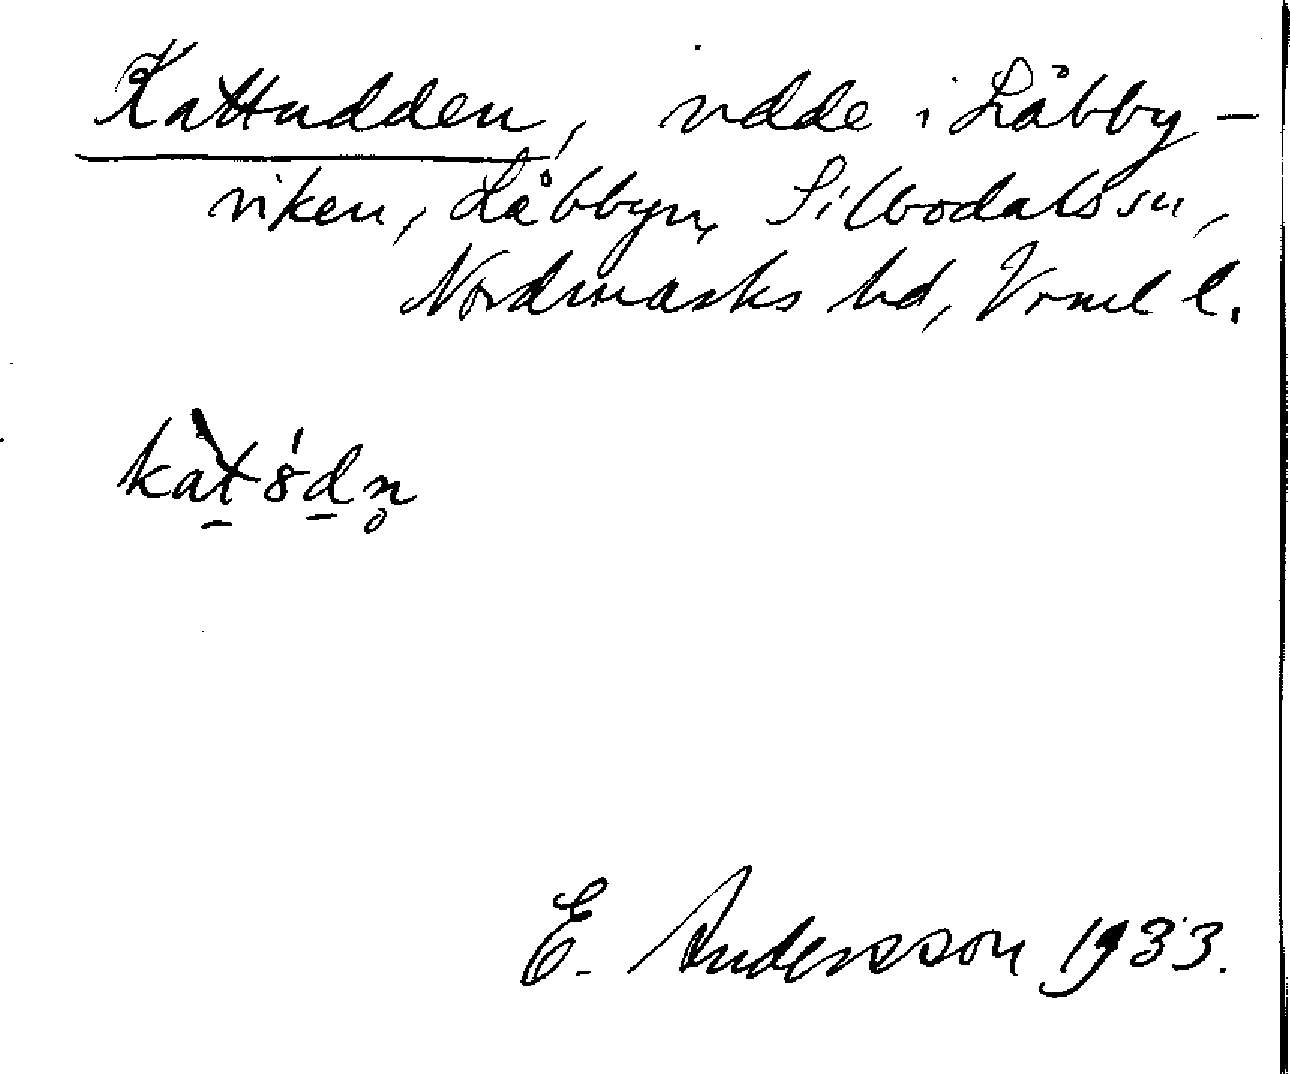 Kattudden, udde i Låbby-
viken, Låbbyn, Silbodals sn,
Nordmarks hd, Vrml l.
kàt̲ȣ́d̲n̥
E. Andersson 1933.